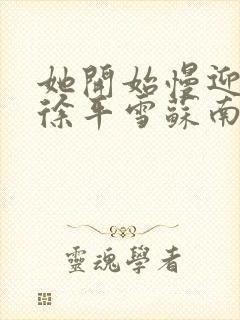 她開始慢迎
徐平雪蘇南
靈魂學者